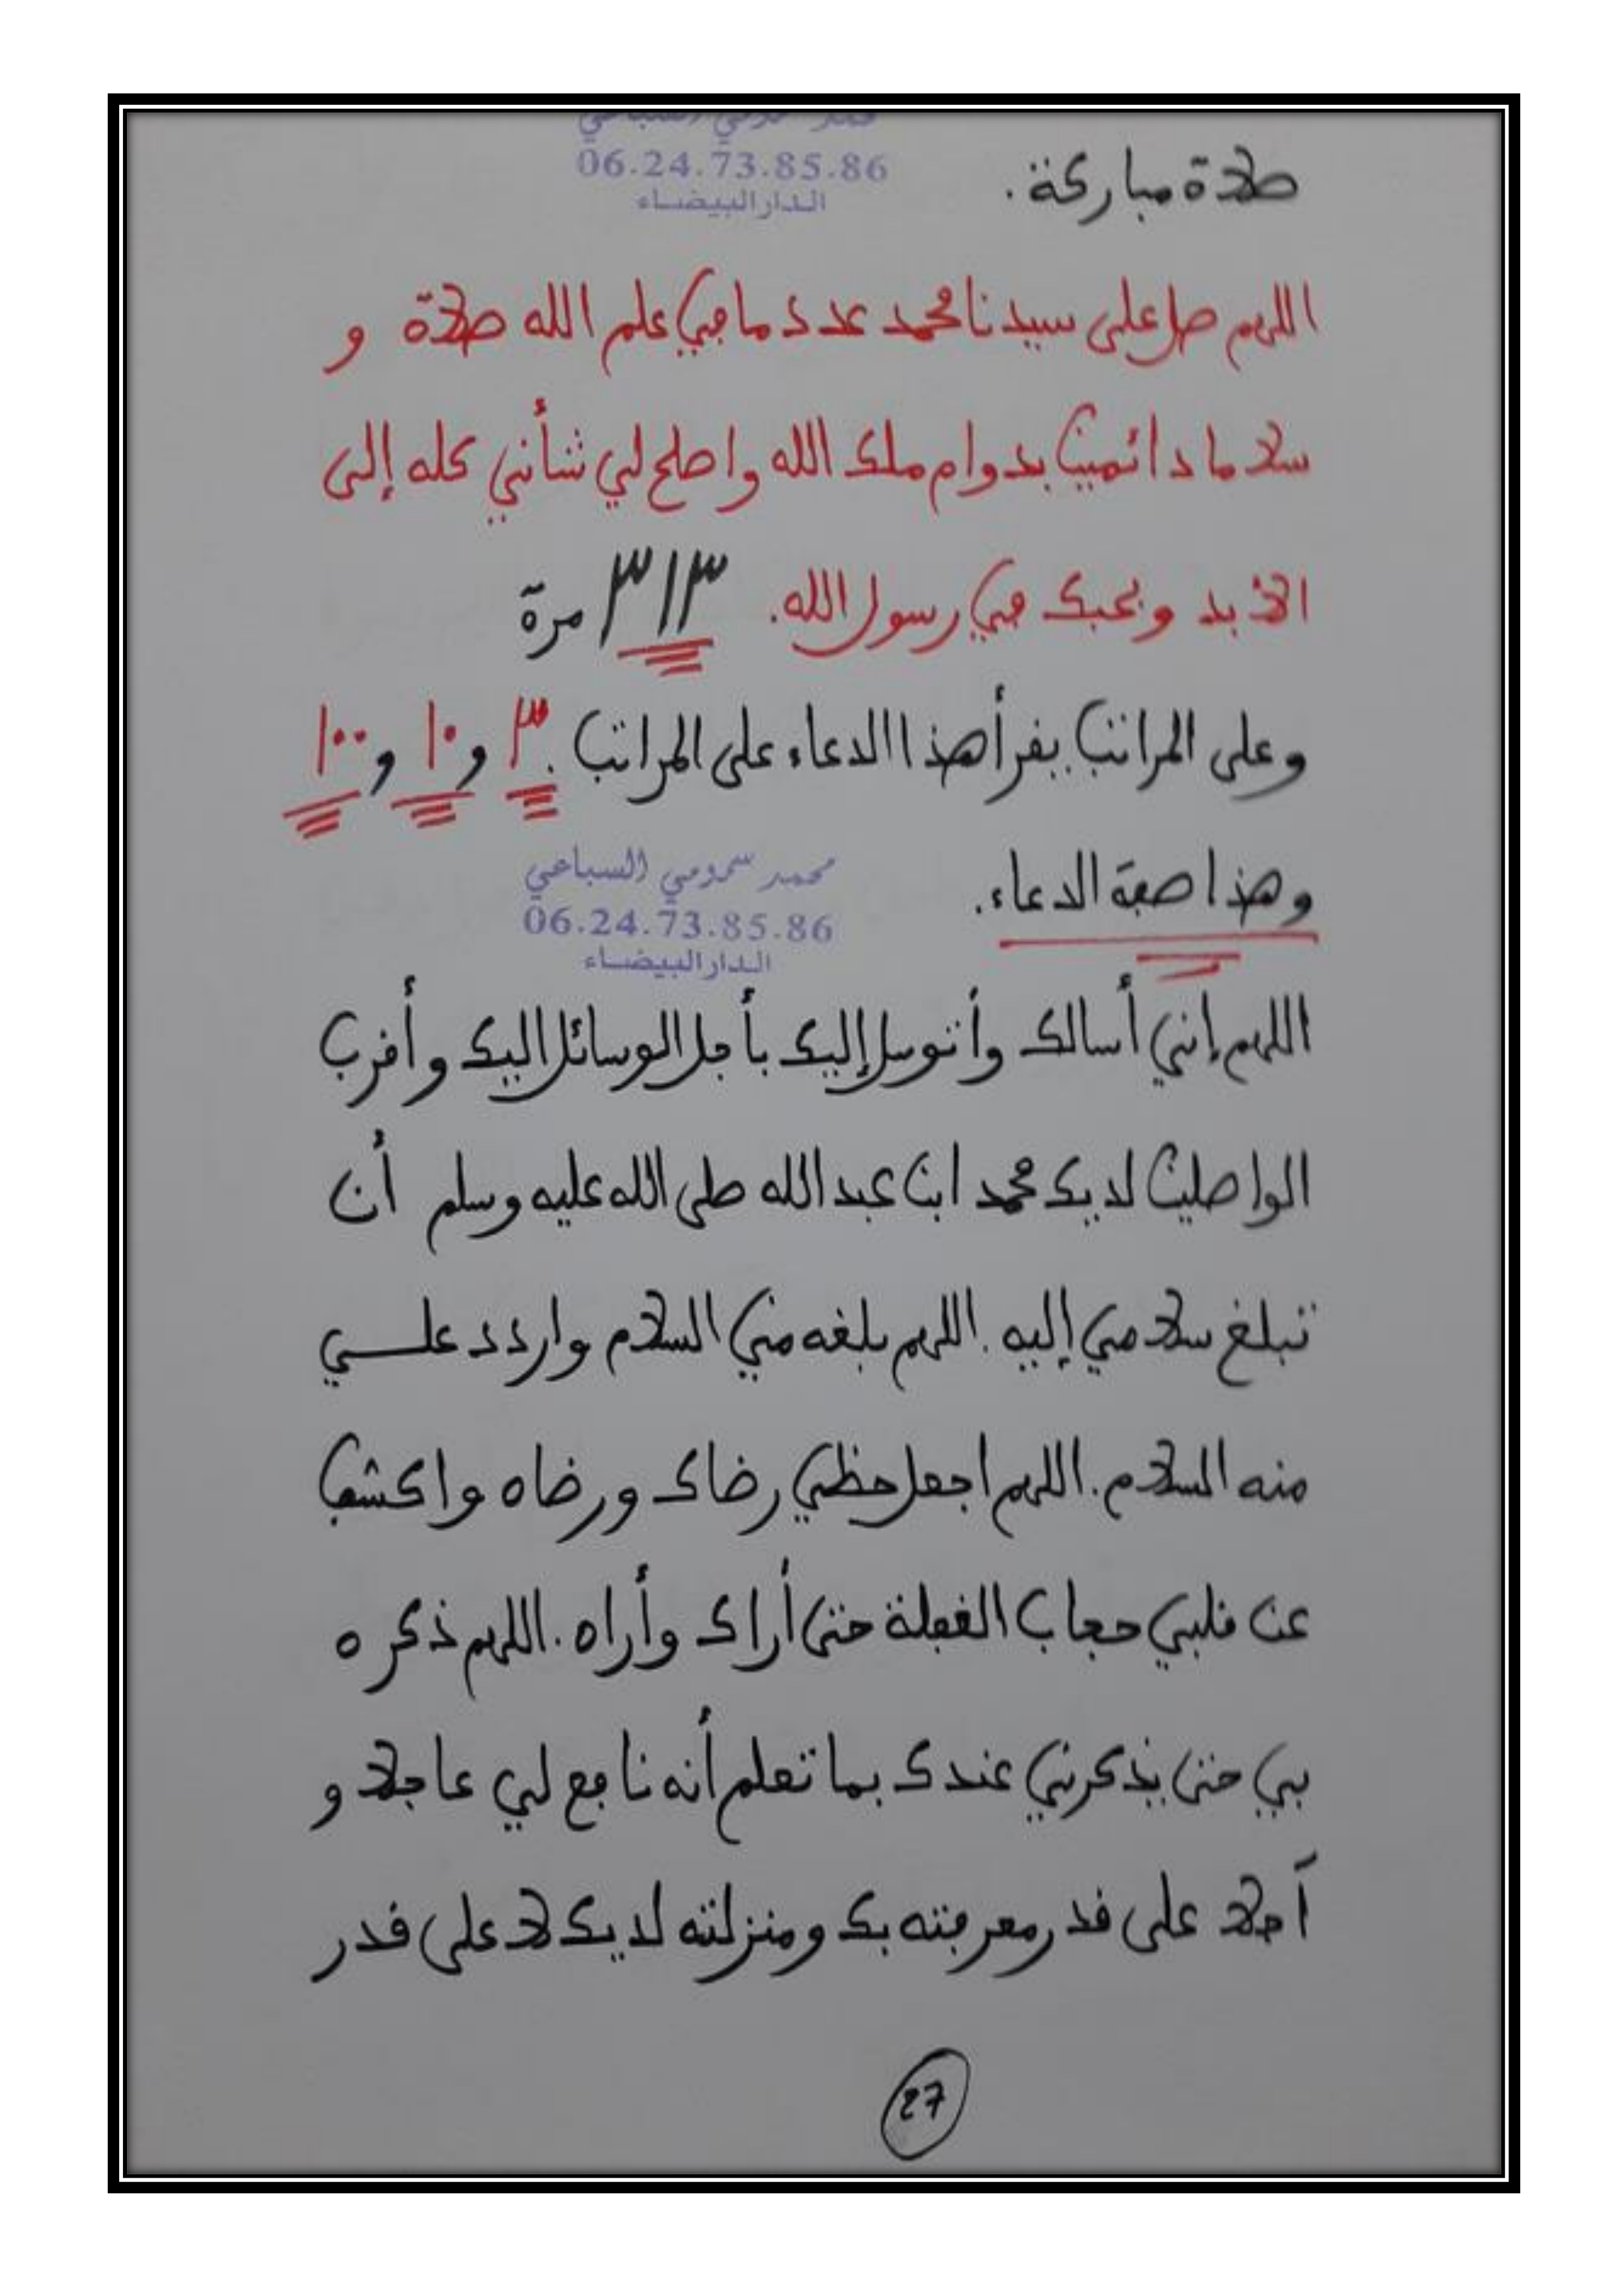 06.24.73.85.86
الدار البيضاء
صلاة مباركة.
اللهم صل على سيدنا محمد عدد ما في علم الله صلاة و
سلاما دائمين بدوام ملك الله واصلح لي شأني كله إلى
الأبد وبحبك في رسول الله. ٣١٣ مرة
وعلى المراتب يقرأ هذا الدعاء على المراتب. ٣ و ١٠ و ١٠٠
وهذا صفة الدعاء.
محمد سمومي السباعي
06.24.73.85.86
الدار البيضاء
اللهم إني أسالك وأتوسل إليك بأجل الوسائل اليك وأقرب
الواصلين لديك محمد ابن عبد الله صلى الله عليه وسلم أن
تبلغ سلامي إليه. اللهم بلغه مني السلام واردد علي
منه السلام. اللهم اجعل حظي رضاك ورضاه واكشف
عن قلبي حجاب الغفلة حتى أراك وأراه. اللهم ذكره
بي حتى يذكرني عندك بما تعلم أنه نافع لي عاجلا و
آجلا على قدر معرفته بك ومنزلته لديك لا على قدر
27